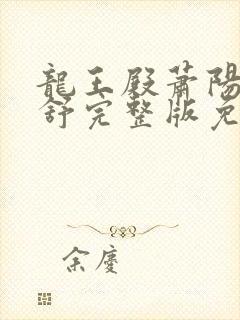 龍王殿蕭陽
舒完整版免
余慶